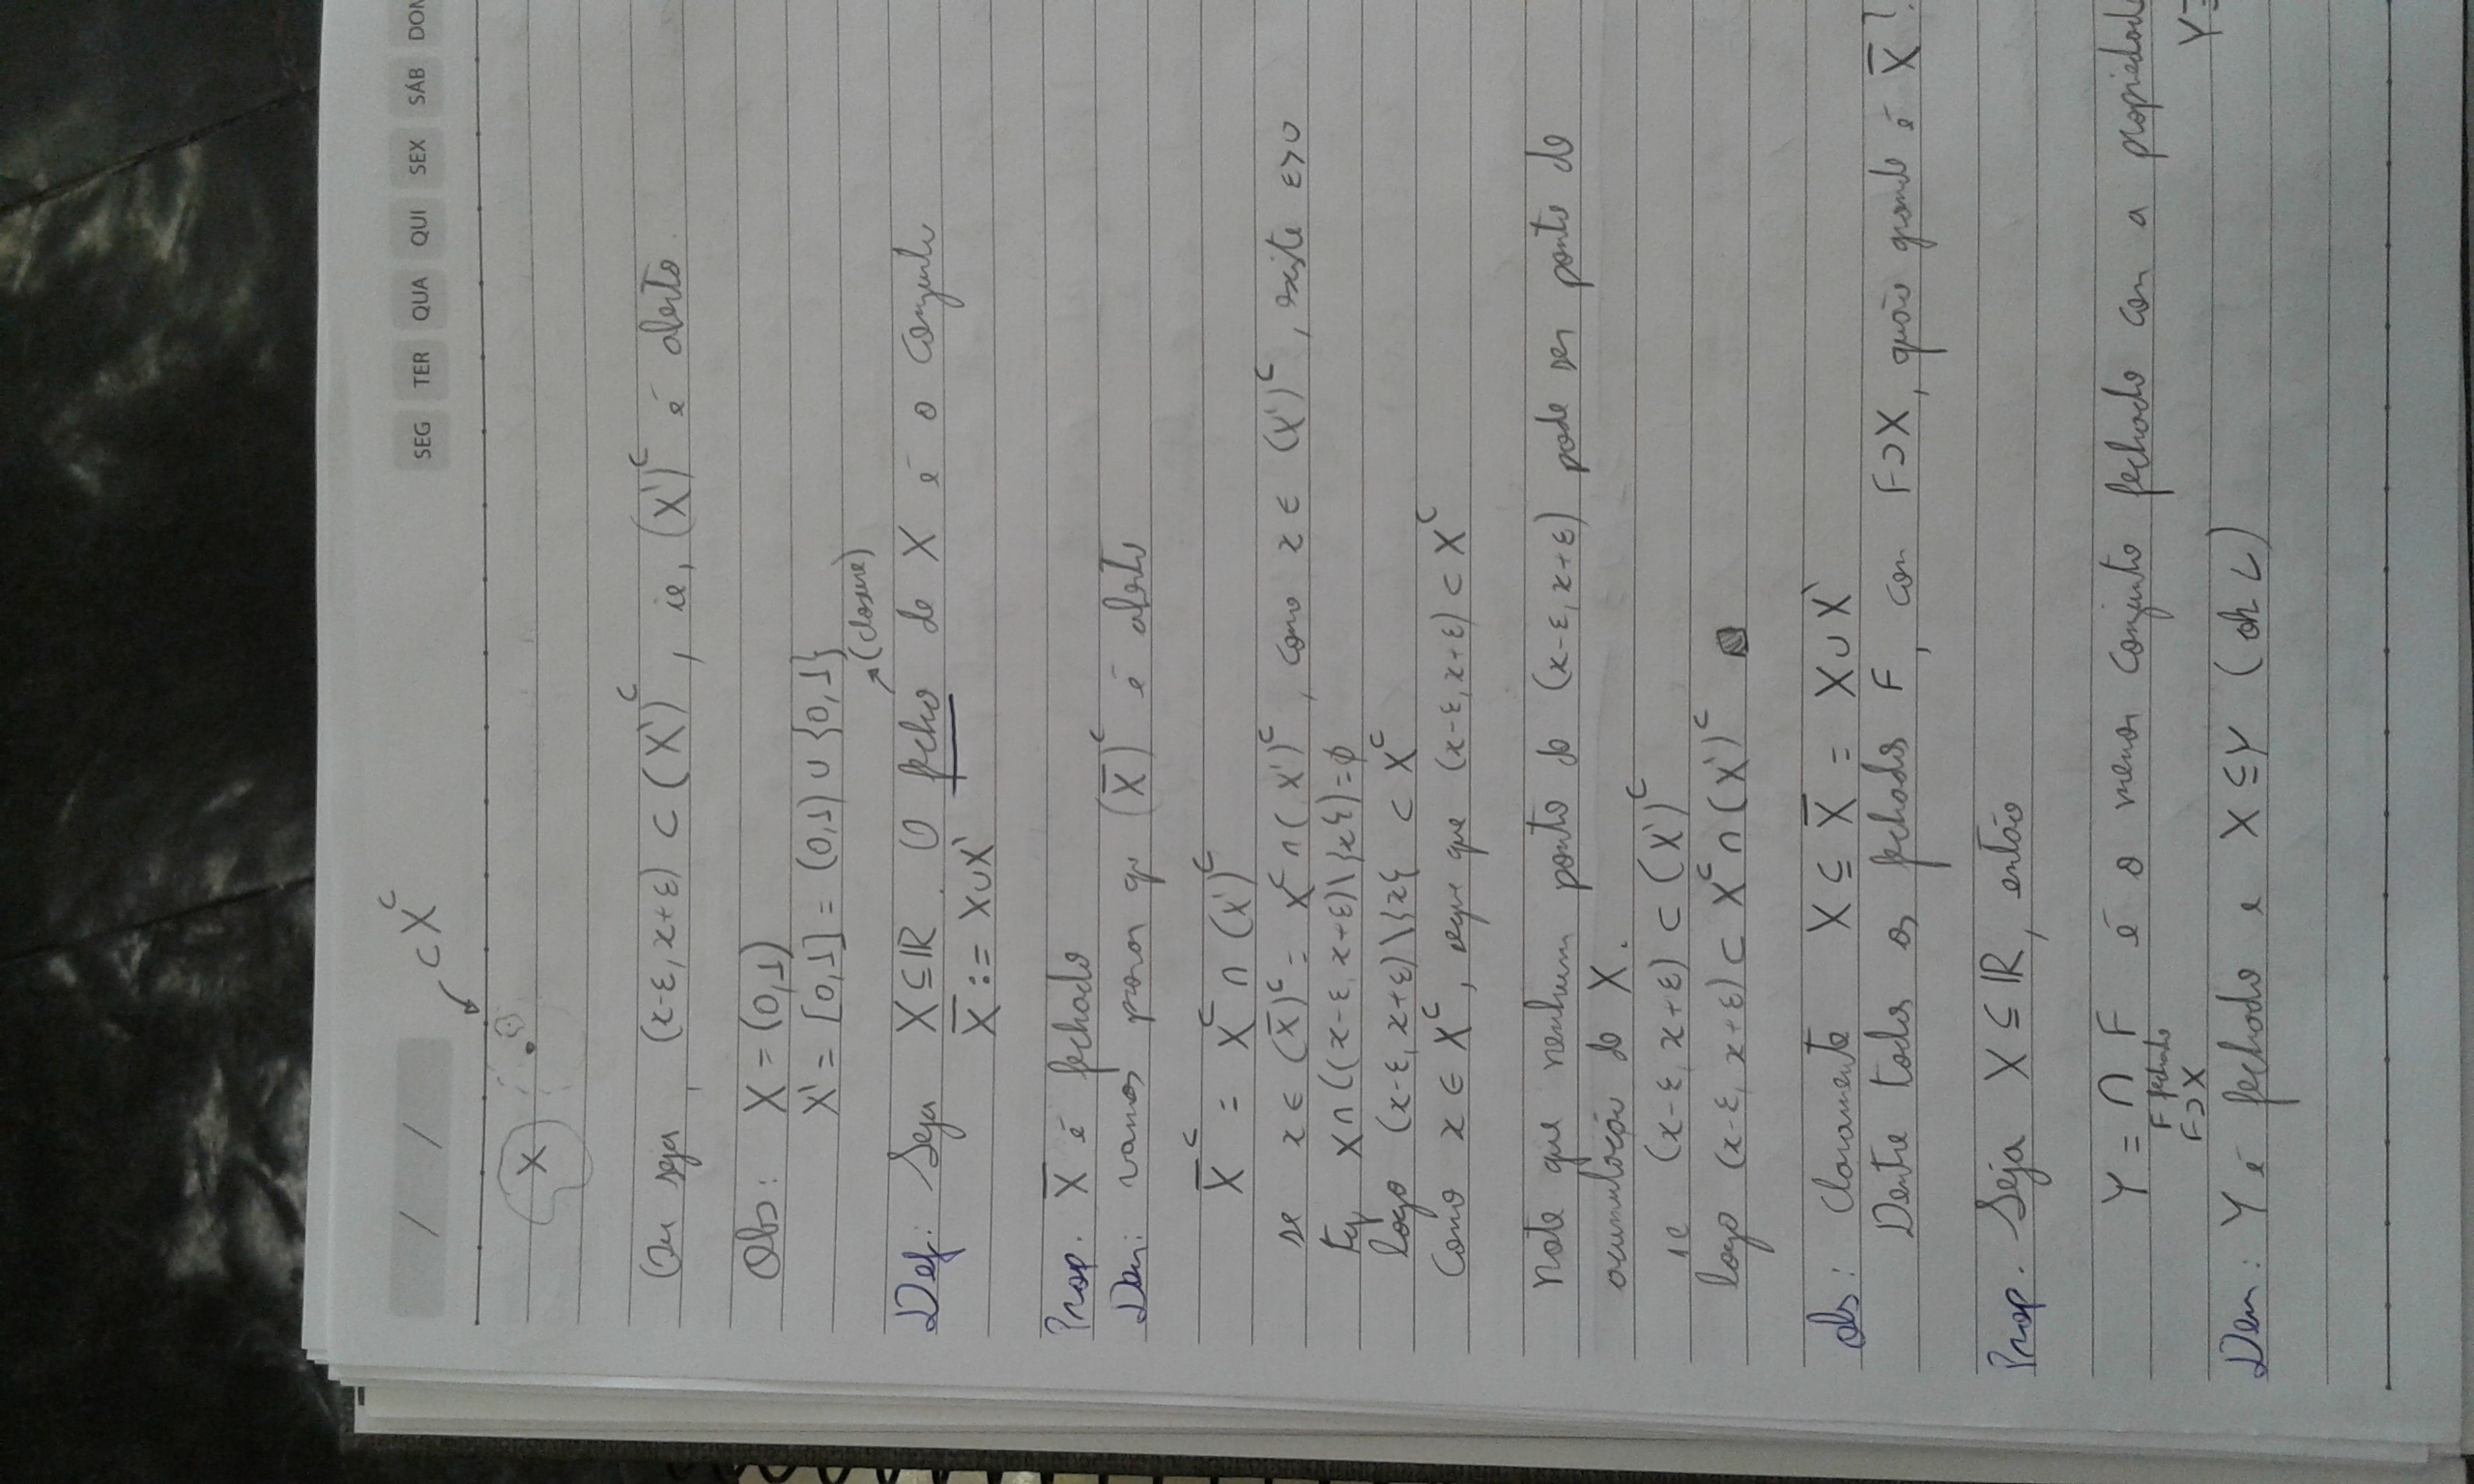 / /
⊂ Xᶜ
SEG TER QUA QUI SEX SÁB DOM
X
Ou seja, (x-ε, x+ε) ⊂ (X')ᶜ, ie, (X')ᶜ é aberto.
Obs: X = (0,1)
X' = [0,1] = (0,1) ∪ {0,1}
(closure)
Def: Seja X ⊆ ℝ. O fecho de X é o conjunto
X̅ := X∪X'
Prop. X̅ é fechado
Dem: vamos provar qu (X̅)ᶜ é aberto
X̅ᶜ = Xᶜ ∩ (X')ᶜ
se x ∈ (X̅)ᶜ = Xᶜ ∩ (X')ᶜ, como x ∈ (X')ᶜ, existe ε>0
tq X∩((x-ε, x+ε)\{x}) = ∅
logo (x-ε, x+ε)\{x} ⊂ Xᶜ
Como x ∈ Xᶜ, segue que (x-ε, x+ε) ⊂ Xᶜ
Note que nenhum ponto de (x-ε, x+ε) pode ser ponto de
acumulação de X.
ie (x-ε, x+ε) ⊂ (X')ᶜ
logo (x-ε, x+ε) ⊂ Xᶜ ∩ (X')ᶜ
obs: Claramente X ⊆ X̅ = X∪X'
Dentre todos os fechados F, com F⊃X, quão grande é X̅?
Prop. Seja X ⊆ ℝ, então
Y = ∩ F é o menor conjunto fechado com a propriedad
F fechado
F⊃X
Y⊇
Dem: Y é fechado e X ⊆ Y (ok L)